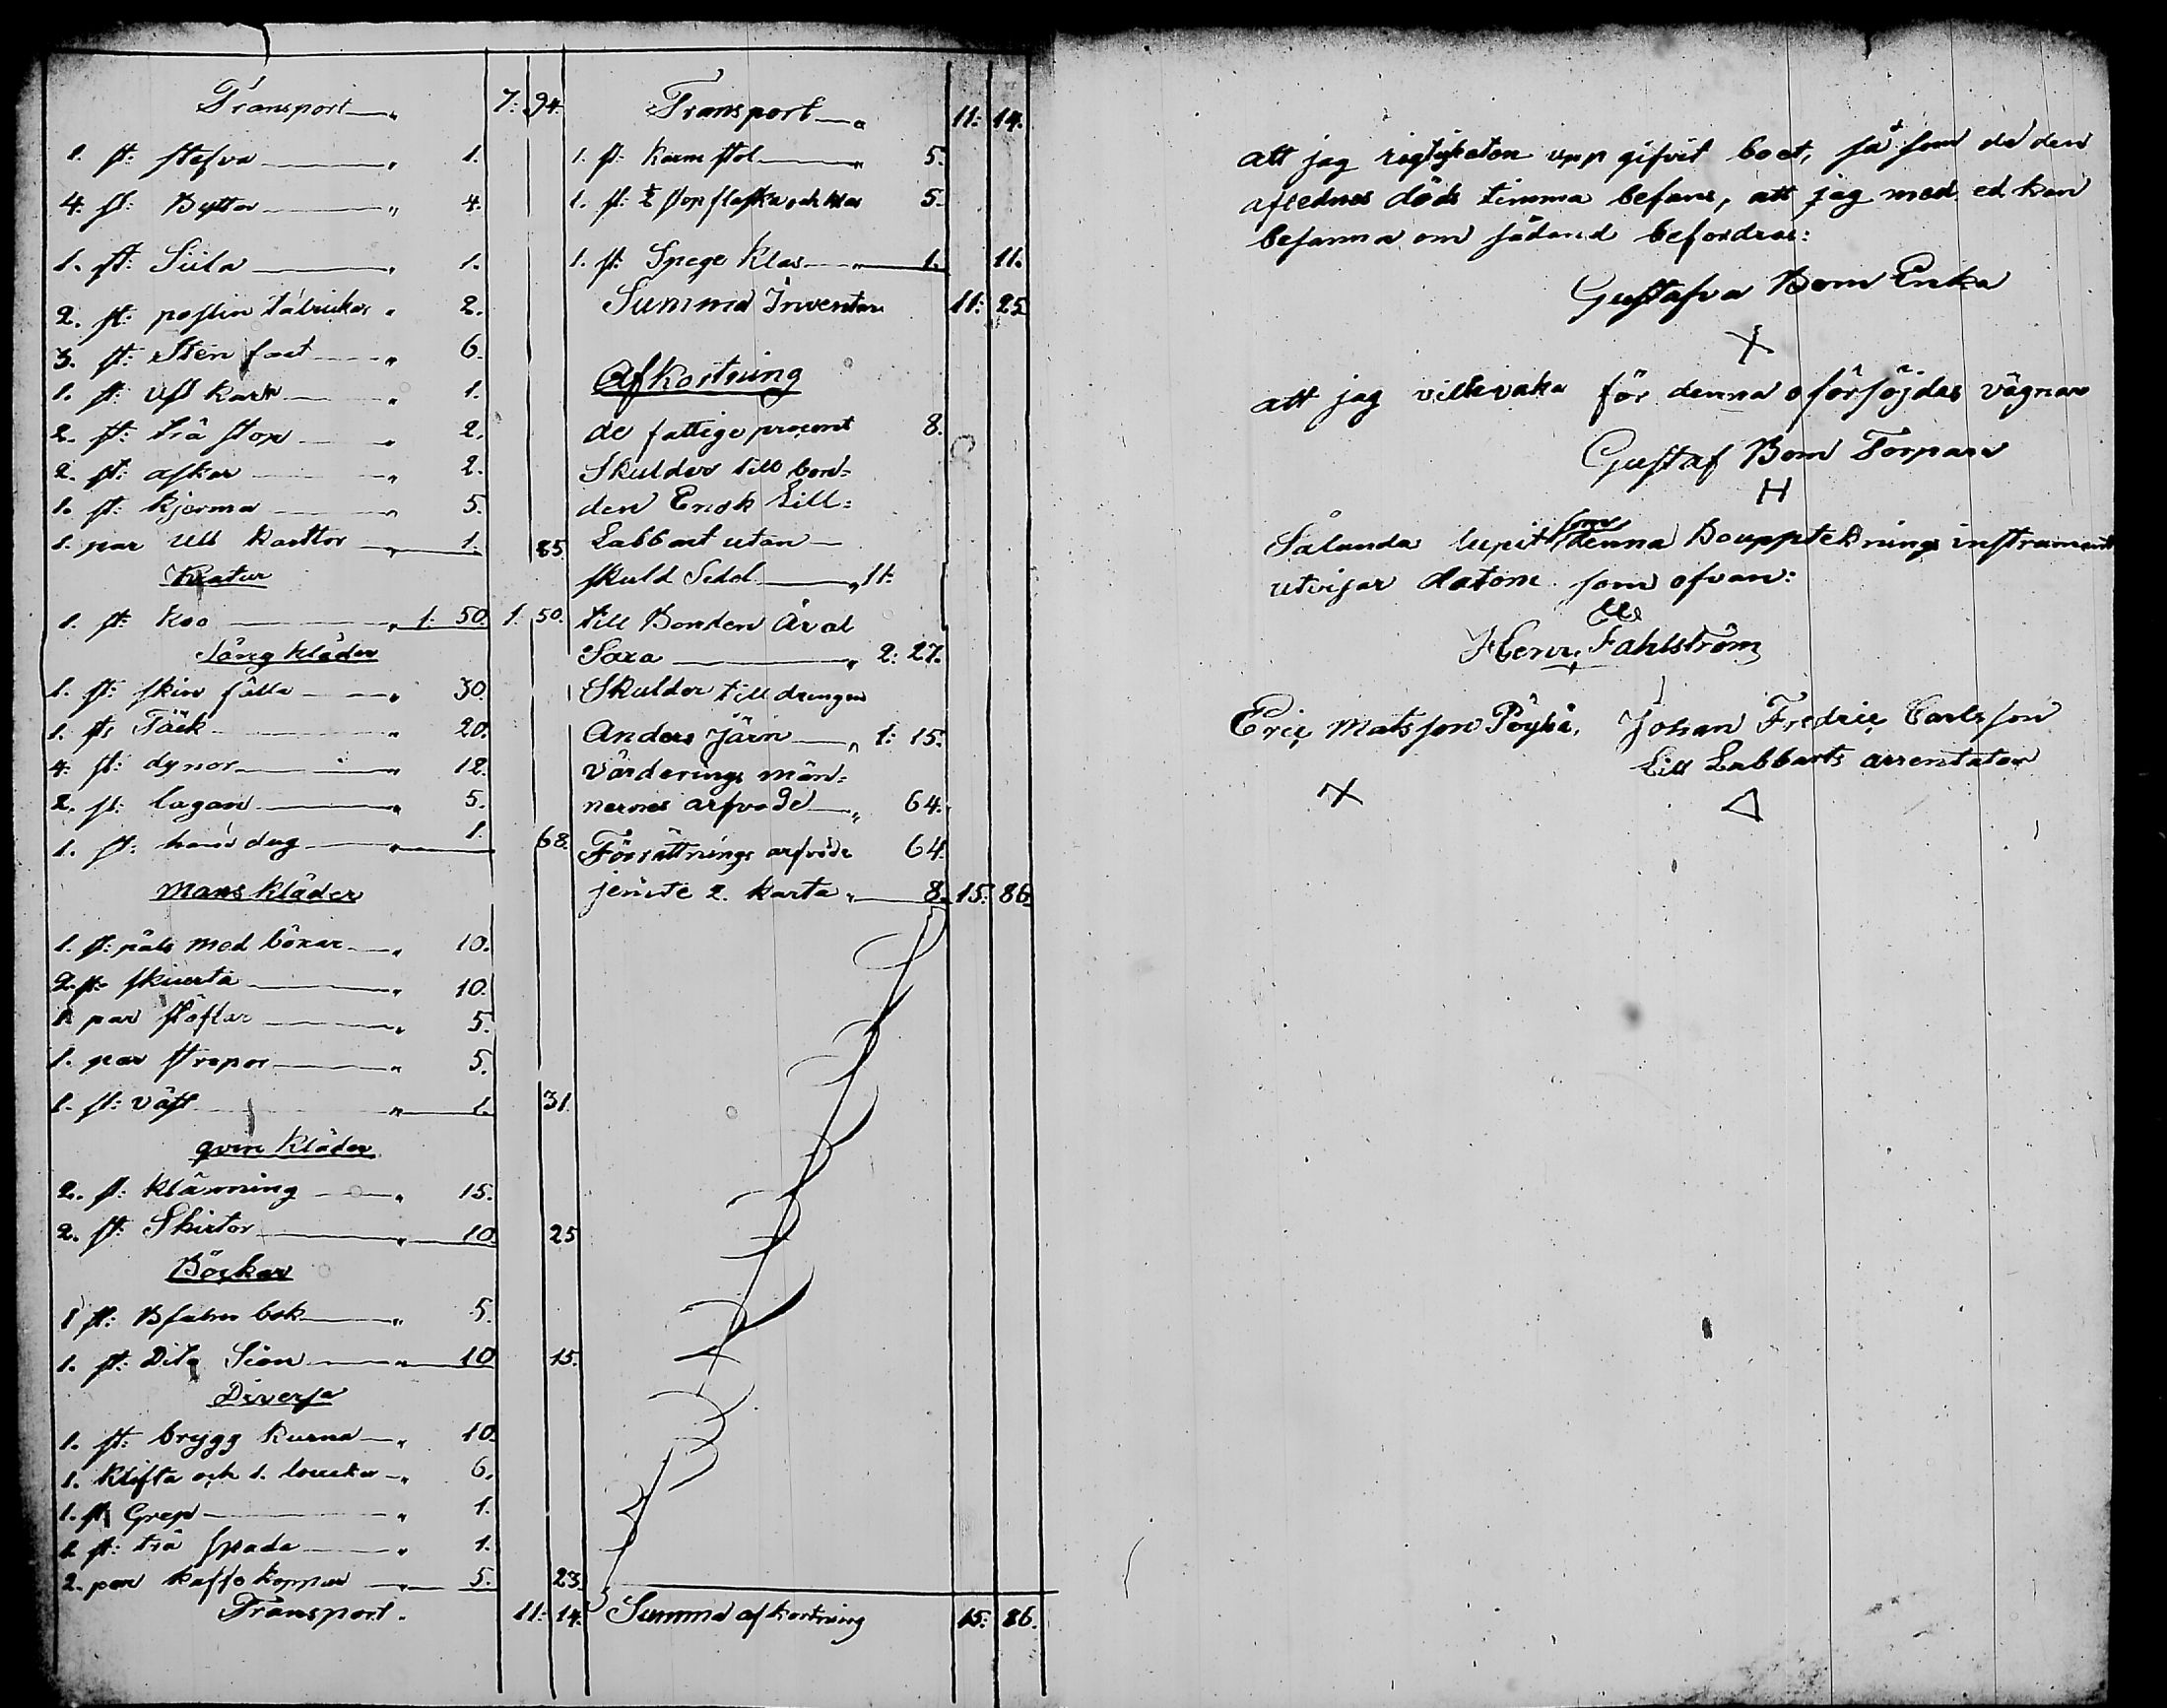 Transport 7: 94.
1. st: stefva 1.
4. st: Byttor 4.
1. st: Siila 1.
2. st: poslin tabrickor 2.
3. st: Sten faat 6.
1. st: ust kark 1.
2. st: trä stop 2.
2. st: askar 2.
1. st: kjerna 5.
1. par ull karttor 1. 85.
Kreatur
1. st: koo 1: 50. 1: 50.
Sängkläder
1. st: skin fälla 30.
1. st: Täck 20.
4. st: dynor 12.
2. st: lagan 5.
1. st: hand dug 1. 68.
mans kläder
1. st: päls med böxar 10.
2. st: skiuerta 10.
1. par stöflar 5.
1. par strepor 5.
1. st: väst 1. 31.
qvin kläder
2. st: klänning 15.
2. st: Skirtor 10. 25
Böcker
1 st: Bsalm bok 5.
1. st: Dito Sion 10 15.
Diversa
1. st: brygg kurna 10.
1. klifta och 1. 6.
1. st Grep 1.
1. st: trä spada 1.
2. par kaffe koppar 5. 23.
Transport. 11: 14.
Transport 11: 14.
1. st: karm stol 5.
1. st: ½ stop flaska och klas 5.
1. st: Spege klas 1. 11.
Summa Inventar 11: 25
Afkortning
de fattige procent 8.
Skulder till bon=
den Enok Lill=
Labbart utan
skuld Sedel 11:
till Bonden
Saxa 2: 27.
Skulder till drengen
Anders Järn 1: 15.
Värderings män=
nernes arfvode 64.
Förrättnings arfvode 64.
jemte 2. karta 8. 15: 86.
Summa afkortning 15: 86.
att jag rigtigheten upp gifvit boet, så som de den
aflednes döds timma befans, att jag med ed kan
befanna om sådand befordras:
Gustafva Bom Enka
X
att jag vill evaka för denna oförsöjdas vägnar
Gustaf Bom Torpare
H
Sålunda lupit som denna Bouppteckning instrument
utvisar datom som ofvan:
Henr. Fahlström
Eric Matsson Pöyhi, Johan Fredric Carlsson
Lill Labbarts arrentator
X △